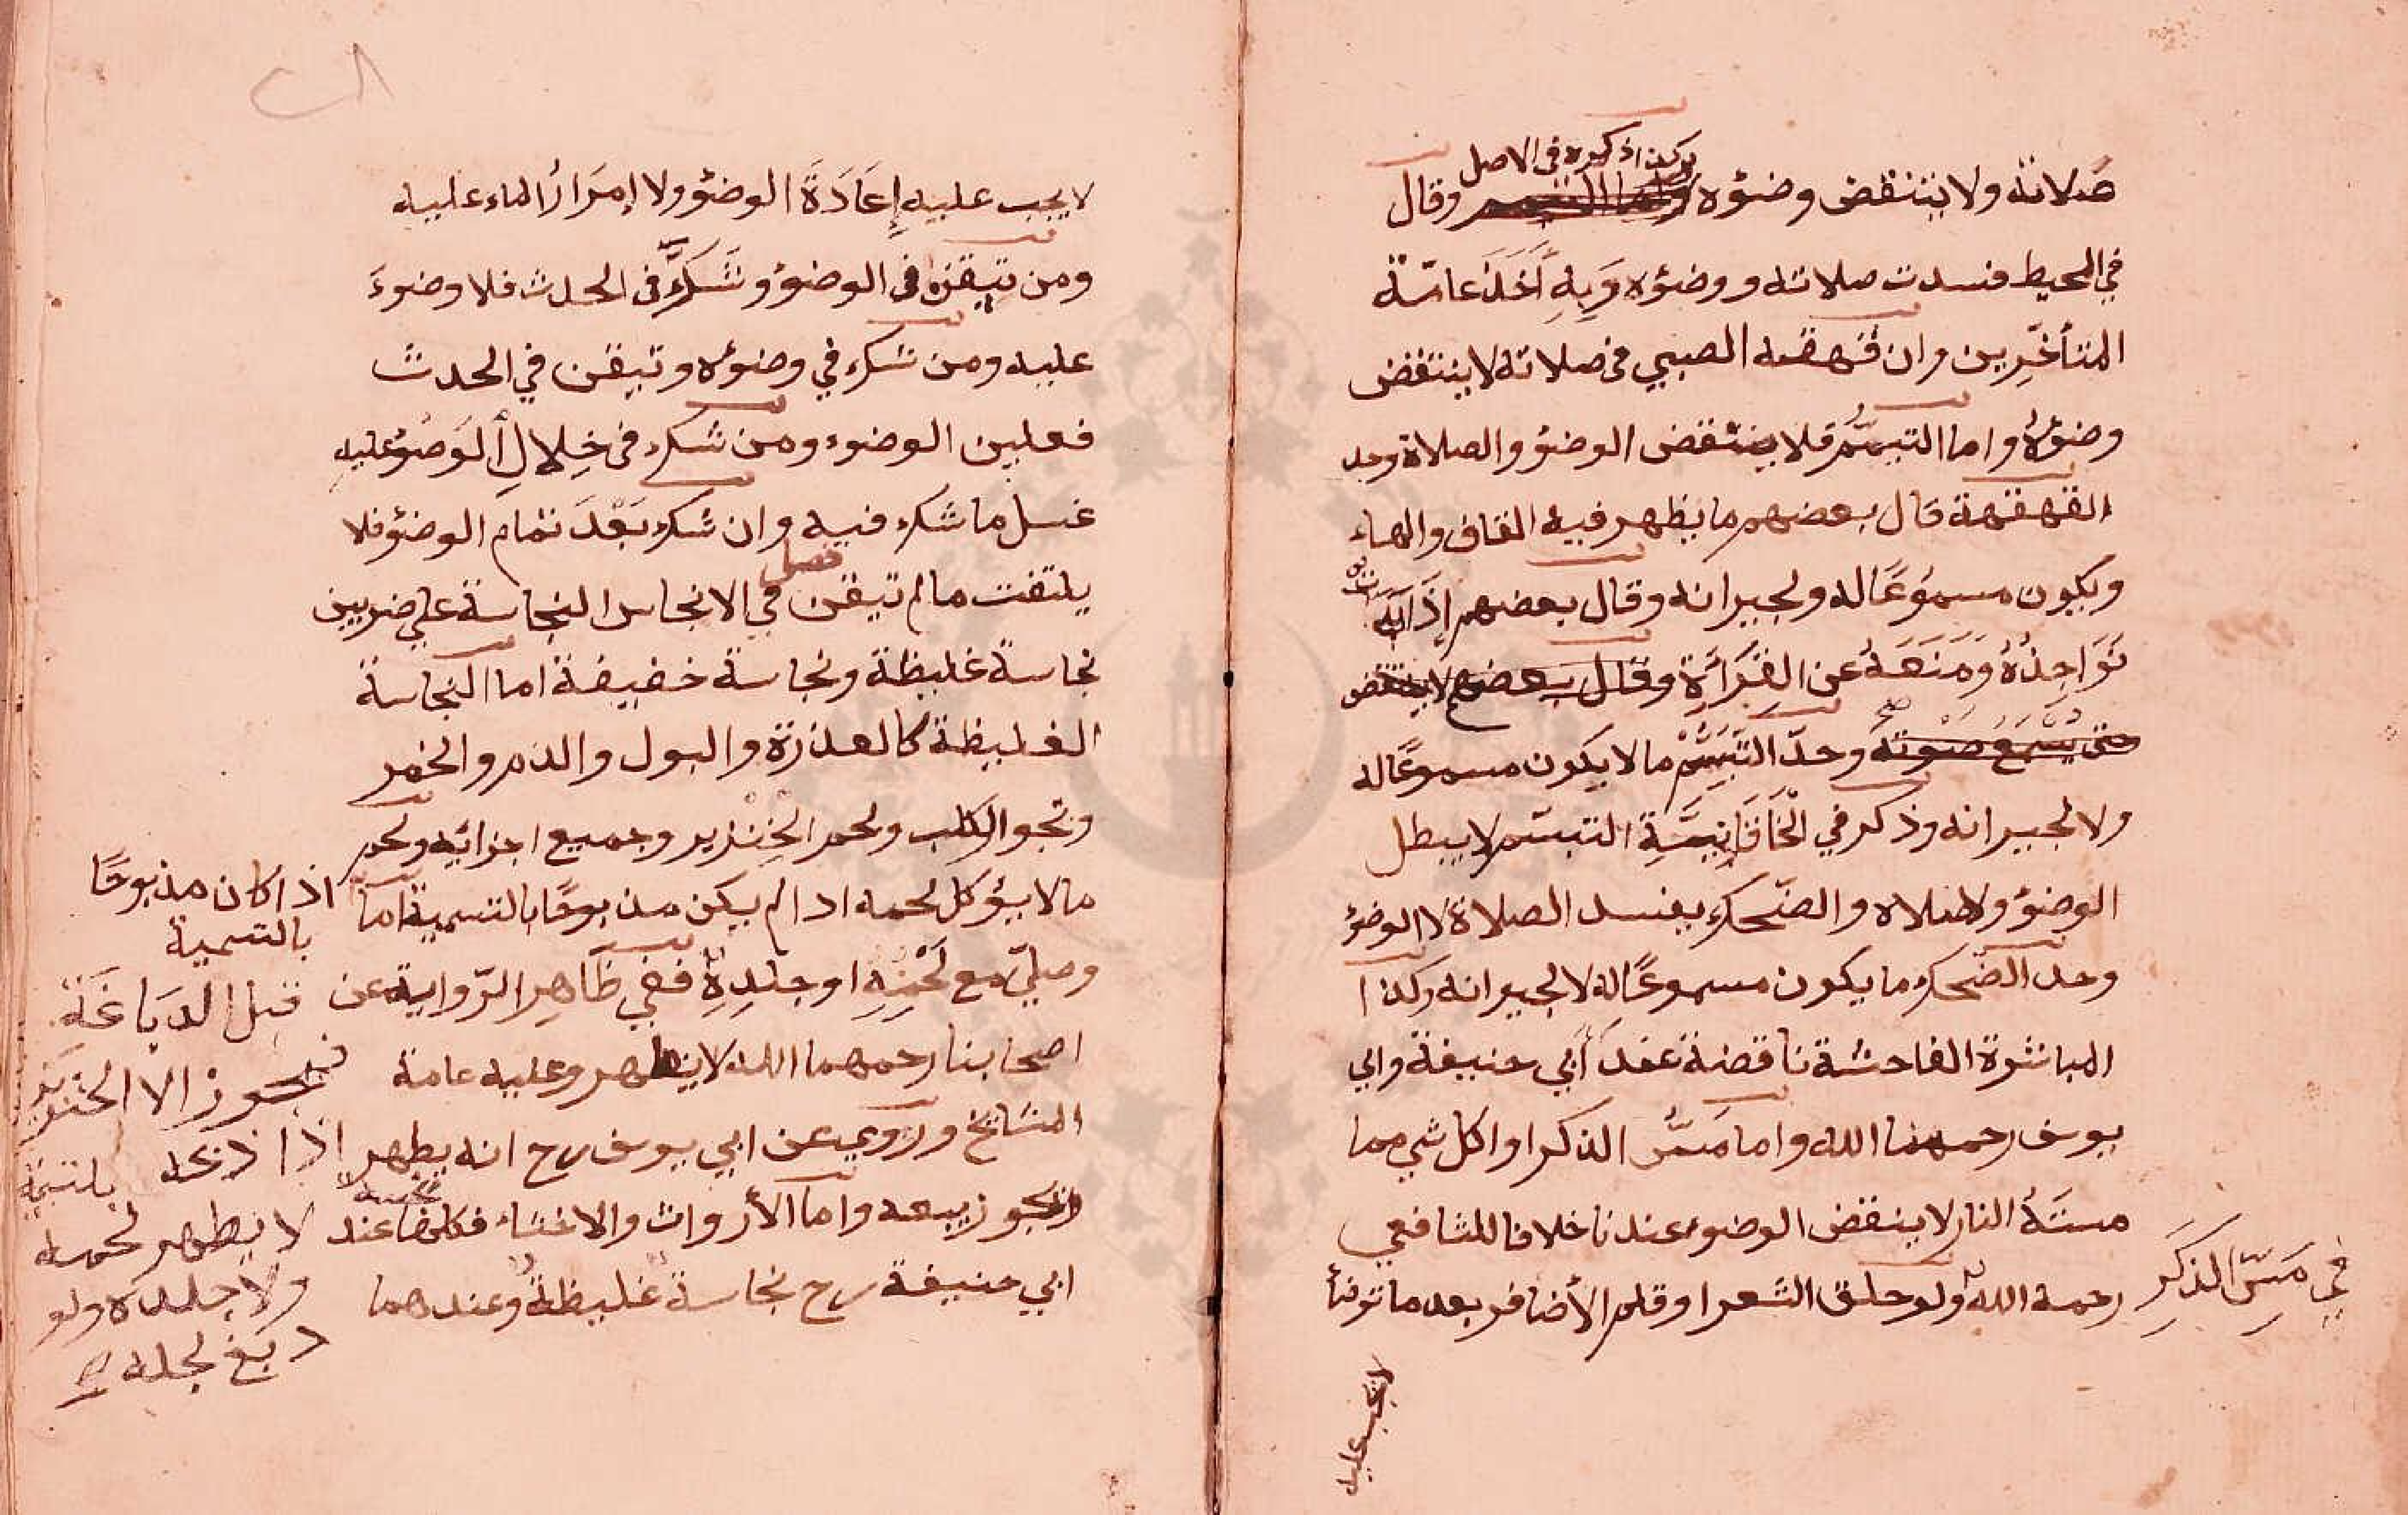 صلاته ولا ينتقض وضؤه وقال
كذا ذكره في الاصل
في المحيط فسدت صلاته ووضؤه وَبِهِ أَخَذَ عامّة
المتأخِّرين وان قهقهه الصبي في صلاته لا ينتقض
وضؤهُ واما التبسُّم فلا ينتقض الوضؤ والصلاة وحد
القهقهة قال بعضهم ما يظهر فيه القاف والهاء
ويكون مسموعًا له ولجيرانه وقال بعضهم إذا بدت
نَوَاجِذُهُ وَمَنَعَهُ عن القِرَأَةِ وقال بعضهم لا ينتقض
حتى يُسْمَعَ صَوْتَهُ وحدّ التَّبَسُّمْ ما لا يكون مسموعًا له
ولا لجيرانه وذكر في الْخَاقَانِيَّةِ التبسّم لا يبطل
الوضؤ ولا الصلاه والضّحك يفسد الصلاة لا الوضؤ
وحد الضّحك ما يكون مسموعًا له لا لجيرانه وكذا
المباشرة الفاحشة ناقضة عند أبي حنيفة وابي
يوسف رحمهما الله واما مَسُّ الذكر او اكل شي مما
مسَّتهُ النار لا ينقض الوضوء عندنا خلافا للشافعي
رحمة الله ولو حلق الشعر او قلم الأضافر بعد ما توضأ
في مَسِّ الذَكَرِ
لا يجب عليه
لا يجب عليه إِعَادَةَ الوضؤ ولا إمرَارُ الماء عليه
ومن تيقن في الوضؤ وشَكَّ في الحدث فلا وضوءَ
عليه ومن شك في وضوئه وتيقن في الحدث
فعليه الوضوء ومن شك في خِلالِ الْوَضُوْ عليه
غسل ما شك فيه وان شك بَعْدَ تمام الوضؤ فلا
يلتفت ما لم تيقن في الانجاس النجاسة علي ضربين
فصل
نجاسة غليظة ونجاسة خفيفة اما النجاسة
الغليظة كالعذرة والبول والدم والخمر
ونجو الكلب ولحم الخِنْزير وجميع اجزائه ولحم
ما لا يؤكل لحمه اذا لم يكن مذبوحًا بالتسمية اما
وصلّي مع لَحْمِهِ او جلْدِهِ ففي ظَاهِر الرّواية عن
اصحابنا رحمهما الله لا يطهر وعليه عامة
المشايخ وروي عن ابي يوسف رح انه يطهر
ويجوز بيعه واما الأرواث والاخثاء فكلها عند
نجسة
ابي حنيفة رح نجاسة غليظة وعندهما
اذا كان مذبوحًا
بالتسمية
قبل الدَبَاغَة
يجوز الا الخنزير
اذا ذبحه بالتسمية
لا يطهر لحمه
ولا جلده ولو
دبغ لجلده